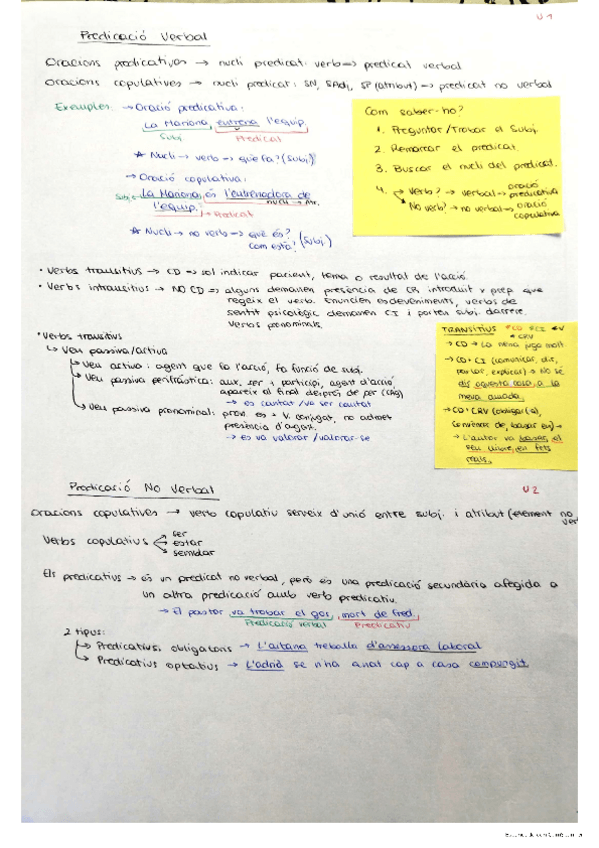 U1
Predicació Verbal
Oracions predicatives → nucli predicat: verb → predicat verbal
Oracions copulatives → nucli predicat: SN, SAdj, SP (atribut) → predicat no verbal
Exemples → Oració predicativa:
La Mariona entrena l'equip.
Subj Predicat
★ Nucli → verb → què fa? (subj)
→ Oració copulativa:
Subj La Mariona és l'entrenadora de
l'equip. nucli → Atr.
→ Predicat
★ Nucli → no verb → què és?
com està? (subj)
Com saber-ho?
1. Preguntar/Trobar el Subj.
2. Remarcar el predicat.
3. Buscar el nucli del predicat.
4. → Verb? → verbal → oració predicativa
No verb? → no verbal → oració copulativa
· Verbs transitius → CD → sol indicar pacient, tema o resultat de l'acció.
· Verbs intransitius → NO CD → alguns demanen presència de CR introduït x prep que
regeix el verb. Enuncien esdeveniments, verbs de
sentit psicològic demanen CI i porten subj. darrere.
Verbs pronominals.
· Verbs transitius
↳ Veu passiva/activa
↳ Veu activa: agent que fa l'acció, fa funció de subj.
↳ Veu passiva perifràstica: aux. ser + participi, agent d'acció
apareix al final després de per (CAg)
→ és cantat / va ser cantat
↳ Veu passiva pronominal: pron. es + V. conjugat, no admet
presència d'agent.
→ es va valorar / valorar-se
TRANSITIUS
→ CD → La nena juga
→ CD + CI (comunicar, dir,
portar, explicar) → No sé
dir aquesta cosa a la
meva amada.
→ CD + CRV (obligar (a),
convèncer de, basar en) →
→ L'autor va basar el
seu llibre en fets
reals.
Predicació No Verbal
U2
Oracions copulatives → verb copulatiu serveix d'unió entre subj. i atribut (element no verbal
Verbs copulatius
ser
estar
semblar
Els predicatius → és un predicat no verbal, però és una predicació secundària afegida a
un altra predicació amb verb predicatiu.
→ El pastor va trobar el gos, mort de fred.
Predicació verbal Predicatiu
2 tipus:
↳ Predicatius obligatoris → L'aitana treballa d'assessora laboral
↳ Predicatius optatius → L'adrià se n'ha anat cap a casa compungit